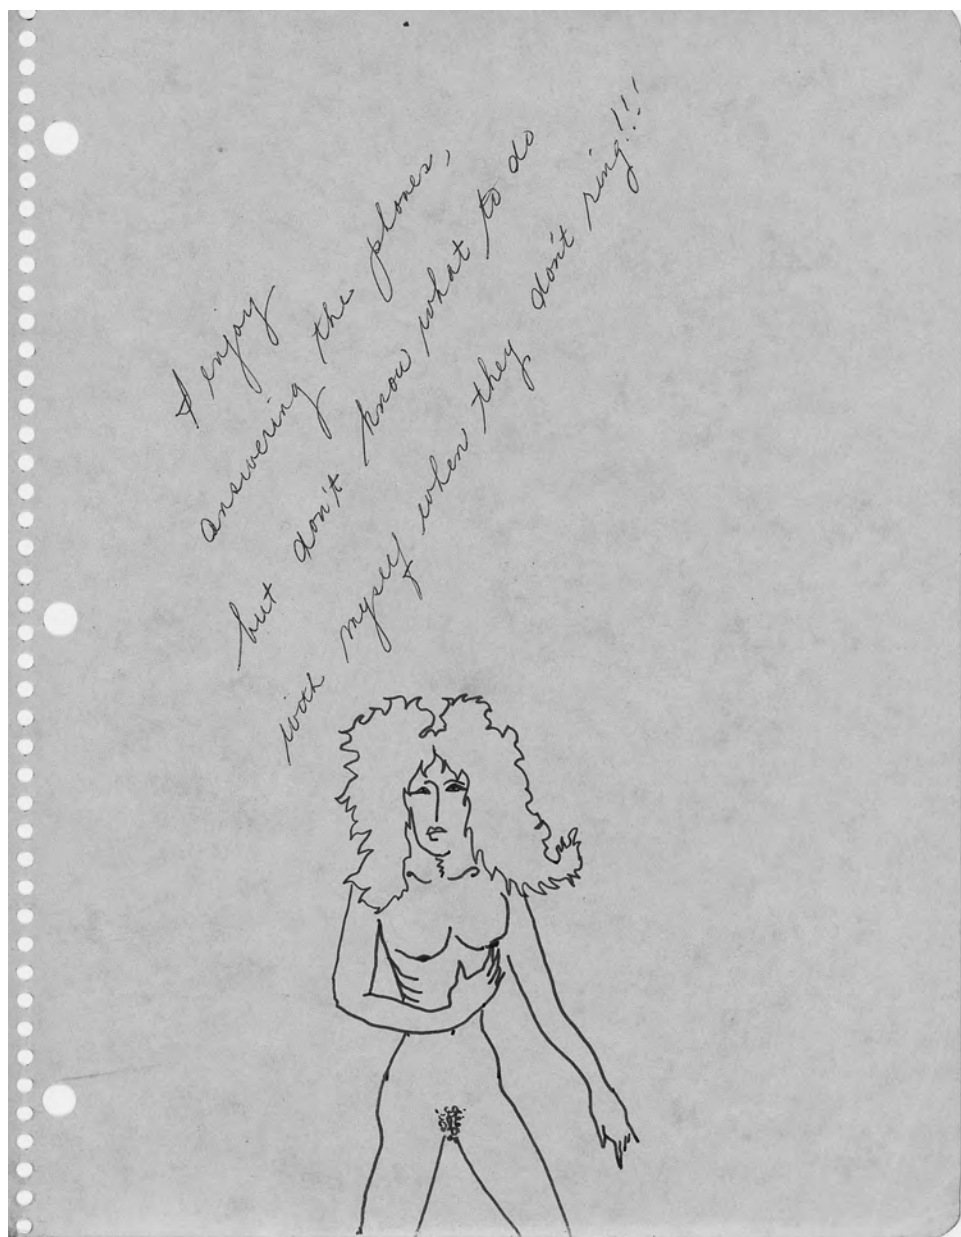 I enjoy
answering the phones,
but don't know what to do
with myself when they don't ring!!!